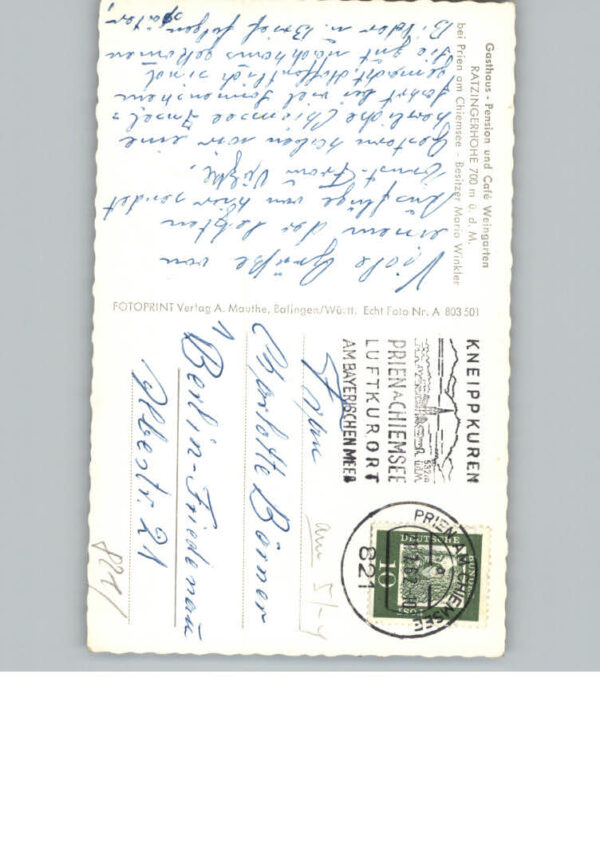 Gasthaus - Pension und Café Weingarten
RATZINGERHÖHE 700 m ü. d. M.
bei Prien am Chiemsee - Besitzer Maria Winkler
Viele Grüße von
einem der letzten
Ausflüge von hier sendet
Gestern haben wir eine
herrliche Chiemsee Insel-
fahrt bei viel Sonnenschein
gemacht. Hoffentlich sind
Sie gut nach Haus gekommen
Bilder u. Brief folgen
später
FOTOPRINT Verlag A. Mauthe, Balingen/Württ. Echt Foto Nr. A 803 501
KNEIPPKUREN
PRIEN A CHIEMSEE
LUFTKURORT
AM BAYERISCHEN MEER
PRIEN AM CHIEMSEE
821
DEUTSCHE
BUNDES
10
Frau
Charlotte Börner
1 Berlin-Friedenau
Albestr. 21